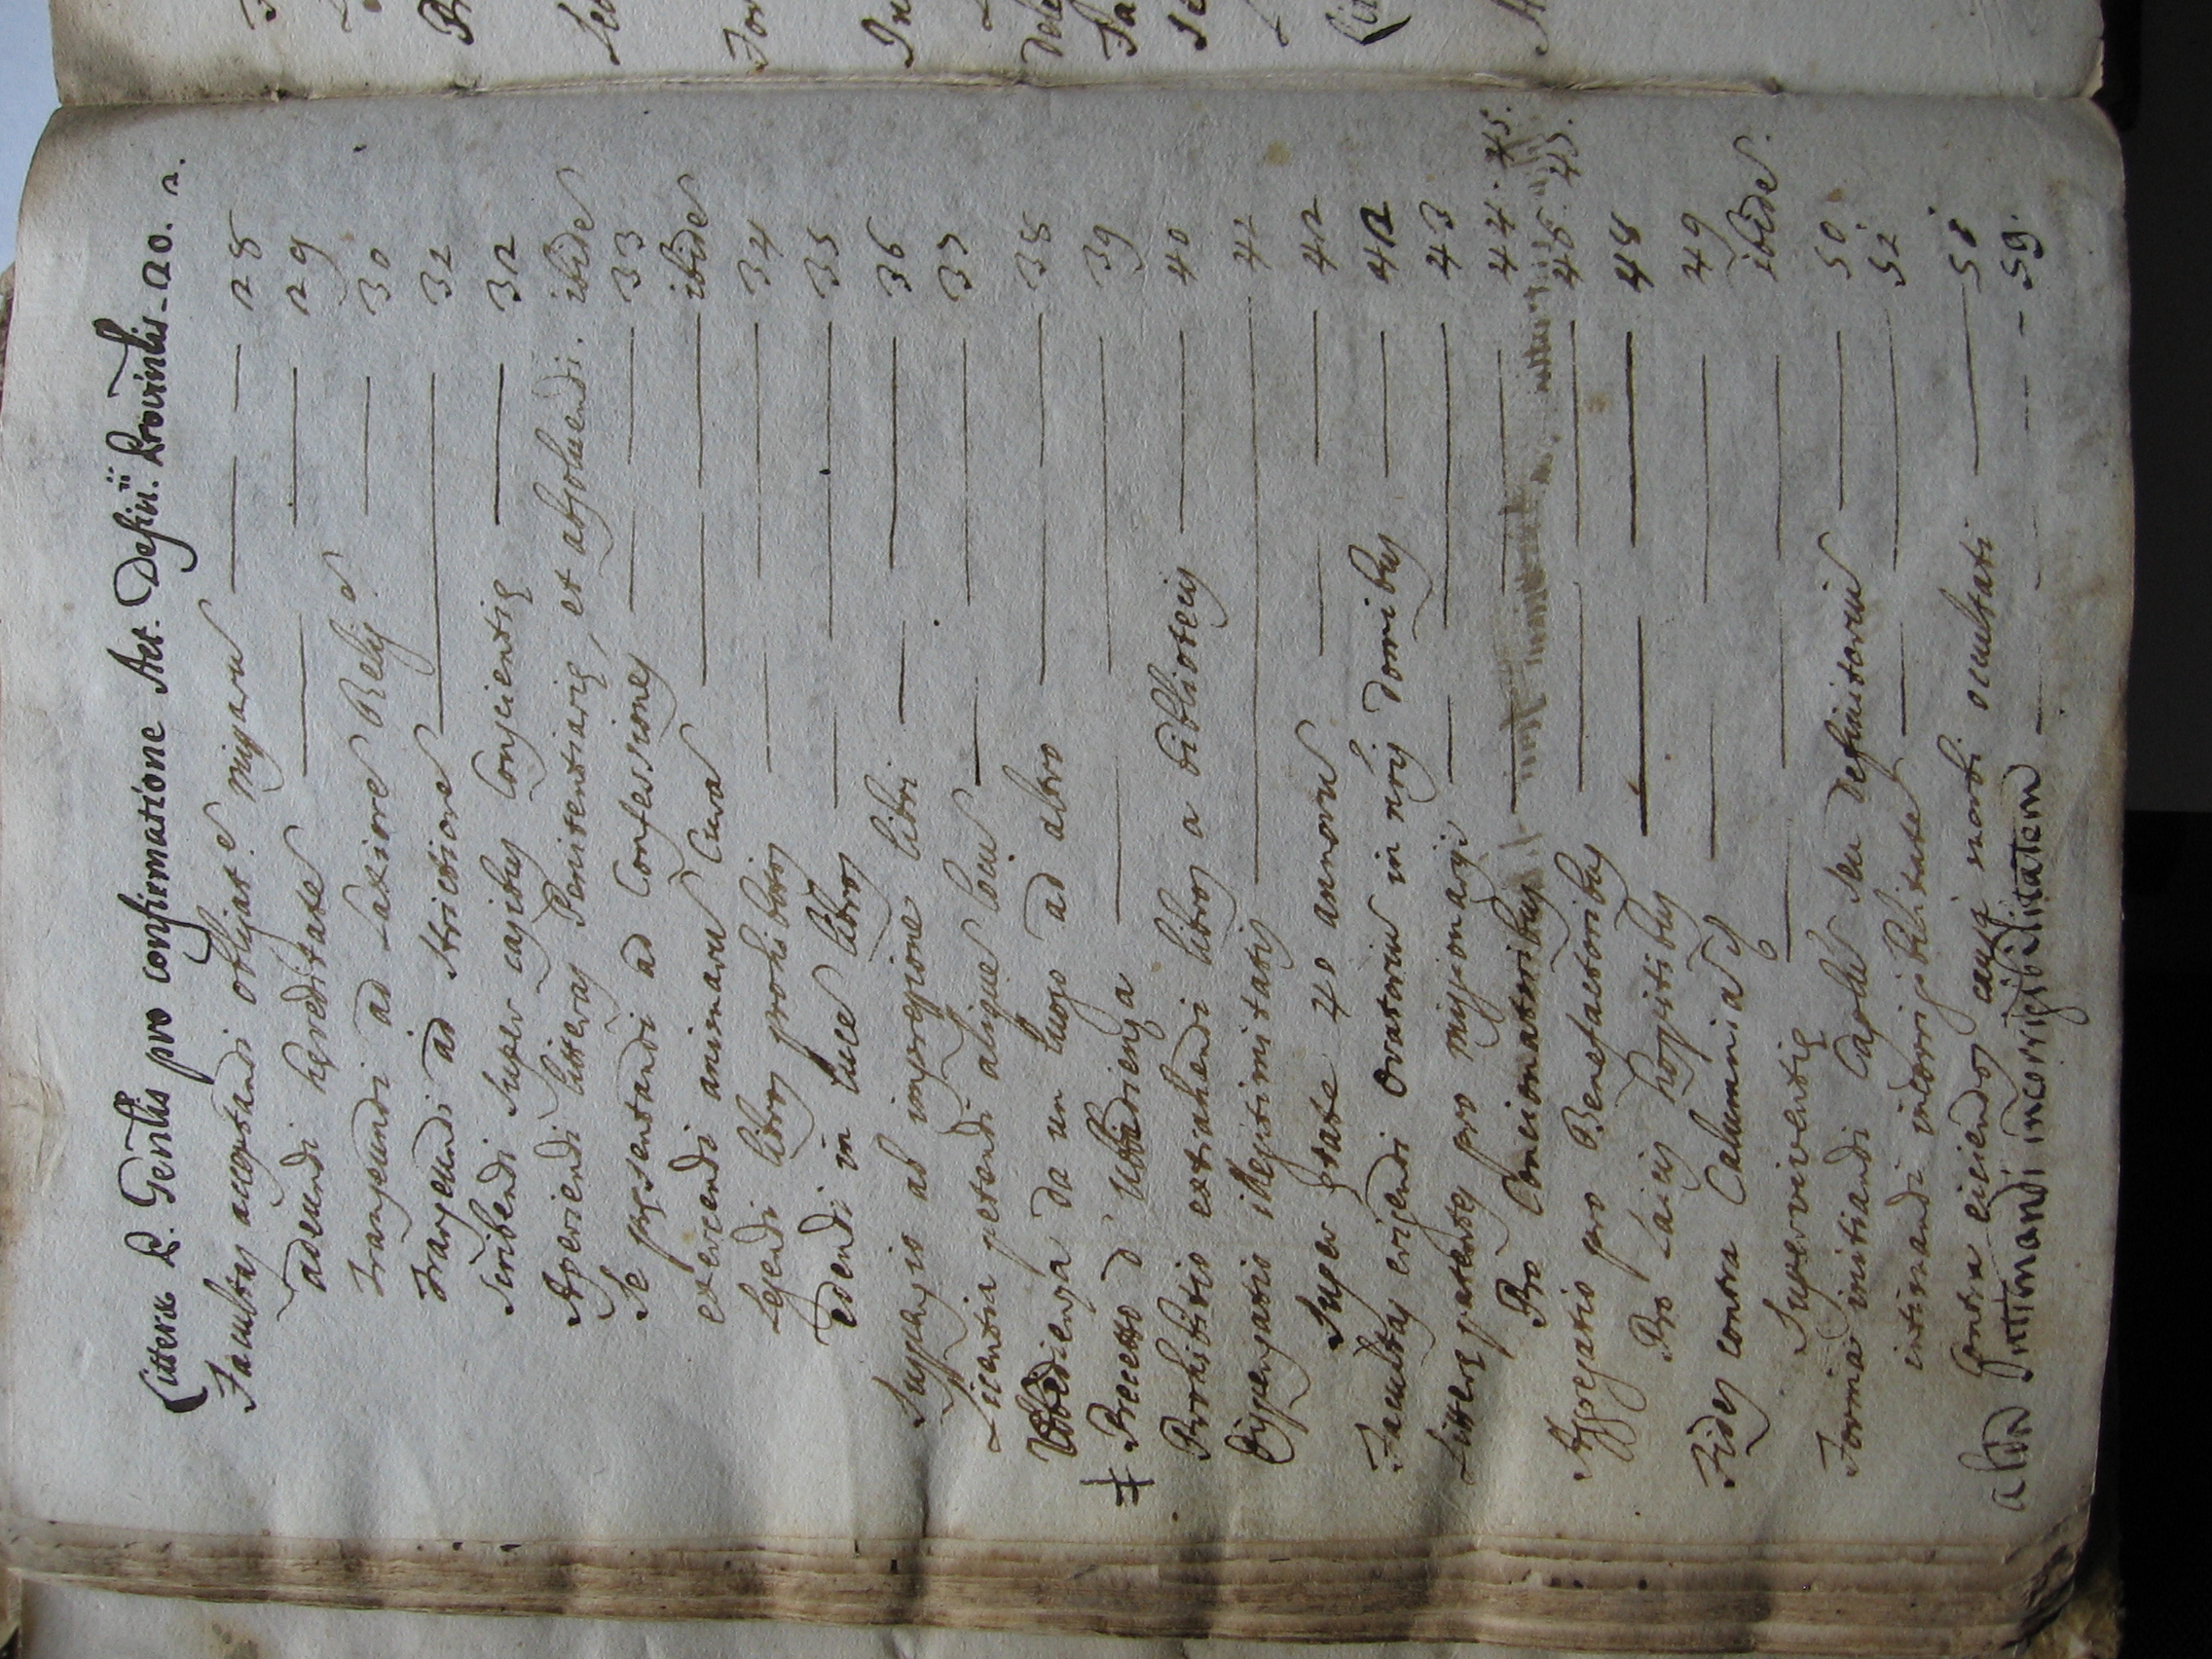 Litteræ P. Gen̄lis pro confirmatione Act. Defin.ii Provin̄lis - 20. 2.
Facultas acceptandi obligat.e Missarū — 28
adeundi hęreditatē — 29
Transeundi ad Laxiorē Relig.e — 30
Transeundi ad strictiorē — 31
Scribendi super casibus Conscientię — 32
Aperiendi litteras Penitentiarię, et absoluendi. ibidē
Se pręsentandi ad Confessiones — 33
exercendi animarū Cura — ibidē
Legendi libros prohibitos — 34
edendi in lucē libros — 35
Suspensio ab impressione libri — 36
Licentia petendi aliquē locū — 37
Ubbidienza da un luogo ad altro — 38
Precetto d'Ubbidienza — 39
Prohibitio extrahendi libros a bibliotecis — 40
Dispensatio illegitimitatis — 41
Super ętate 40 annorū — 42
Facultas erigendi oratoriū in nr̄is domibus — 42
Litterę patentes pro missionarijs — 43
Pro Concionatoribus — 44. 45.
Aggregatio pro Benefactoribus — 45.
Pro Laicis hospitibus — 48
Fides contra Calumniās — 49
Superviventię — ibidē.
Forma initiandi Cap̄lū seu Definitoriū — 50
intimandi incorrigibilitatē — 52
Contra eiiciendos causa morbi occultati — 58
alia Intimandi incorrigibilitatem — 59.